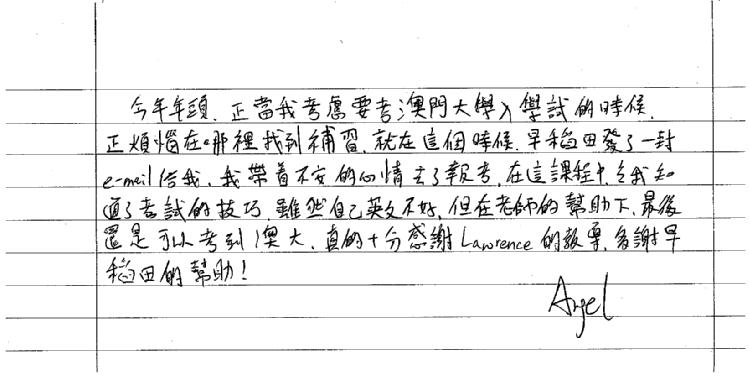 今年年頭，正當我考慮要考澳門大學入學試的時候，
正煩惱在哪裡找到補習，就在這個時候，早稻田發了一封
e-mail給我，我帶着不安的心情去了報考，在這課程中，令我知
道了考試的技巧，雖然自己英文不好，但在老師的幫助下，最後
還是可以考到澳大，真的十分感謝Lawrence的教導，多謝早
稻田的幫助！
Angel